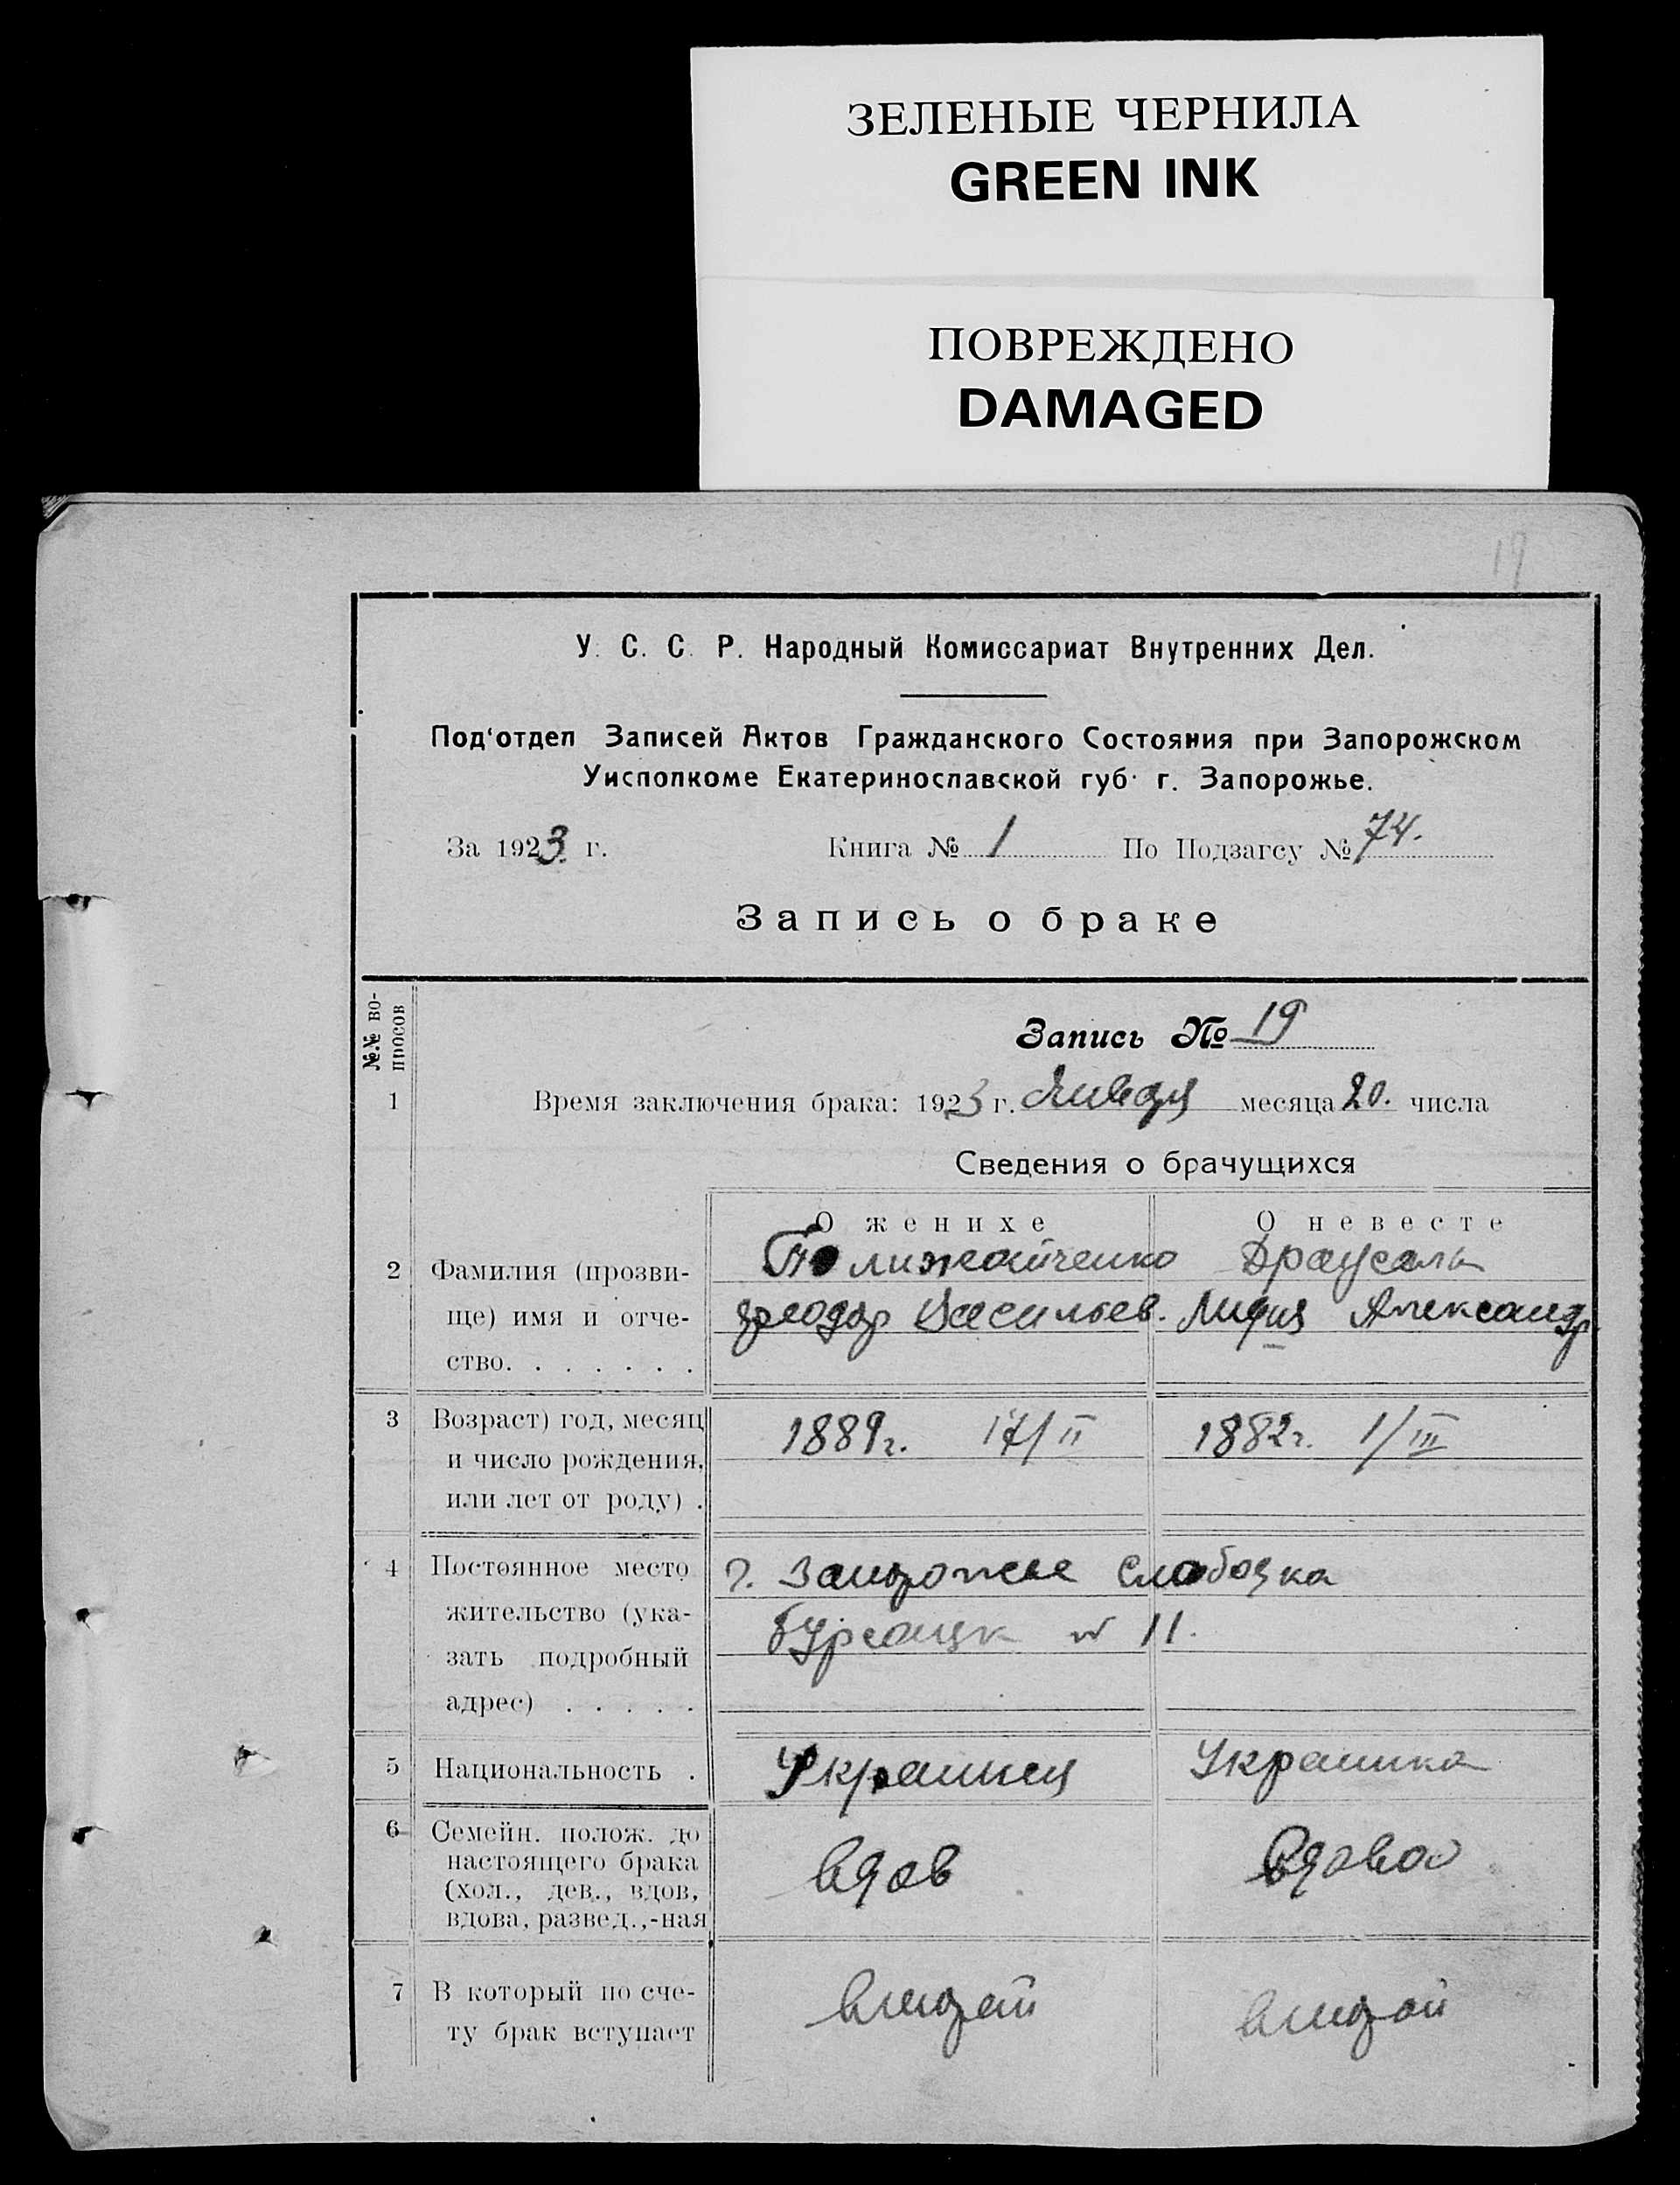 ЗЕЛЕНЫЕ ЧЕРНИЛА
GREEN INK
ПОВРЕЖДЕНО
DAMAGED
19
У. С. С. Р. Народный Комиссариат Внутренних Дел.
Под'отдел Записей Актов Гражданского Состояния при Запорожском
Уисполкоме Екатеринославской губ. г. Запорожье.
За 1923 г. Книга № 1 По Подзагсу № 74.
Запись о браке
№№ во-
просов
Запись № 19
1 Время заключения брака: 1923 г. Января месяца 20. числа
Сведения о брачущихся
О женихе О невесте
2 Фамилия (прозви-
ще) имя и отче-
ство. . . . . . .
Феодор Васильев. Лидия Александр.
3 Возраст) год, месяц
и число рождения,
или лет от роду) .
1889г. 17/II 1882г. 1/III
4 Постоянное место
жительство (ука-
зать подробный
адрес) . . . . .
г. Запорожье Слободка
№ 11.
5 Национальность . Украинец Украинка
6 Семейн. полож. до
настоящего брака
(хол., дев., вдов,
вдова, развед.,-ная
вдов вдова
7 В который по сче-
ту брак вступает
второй второй